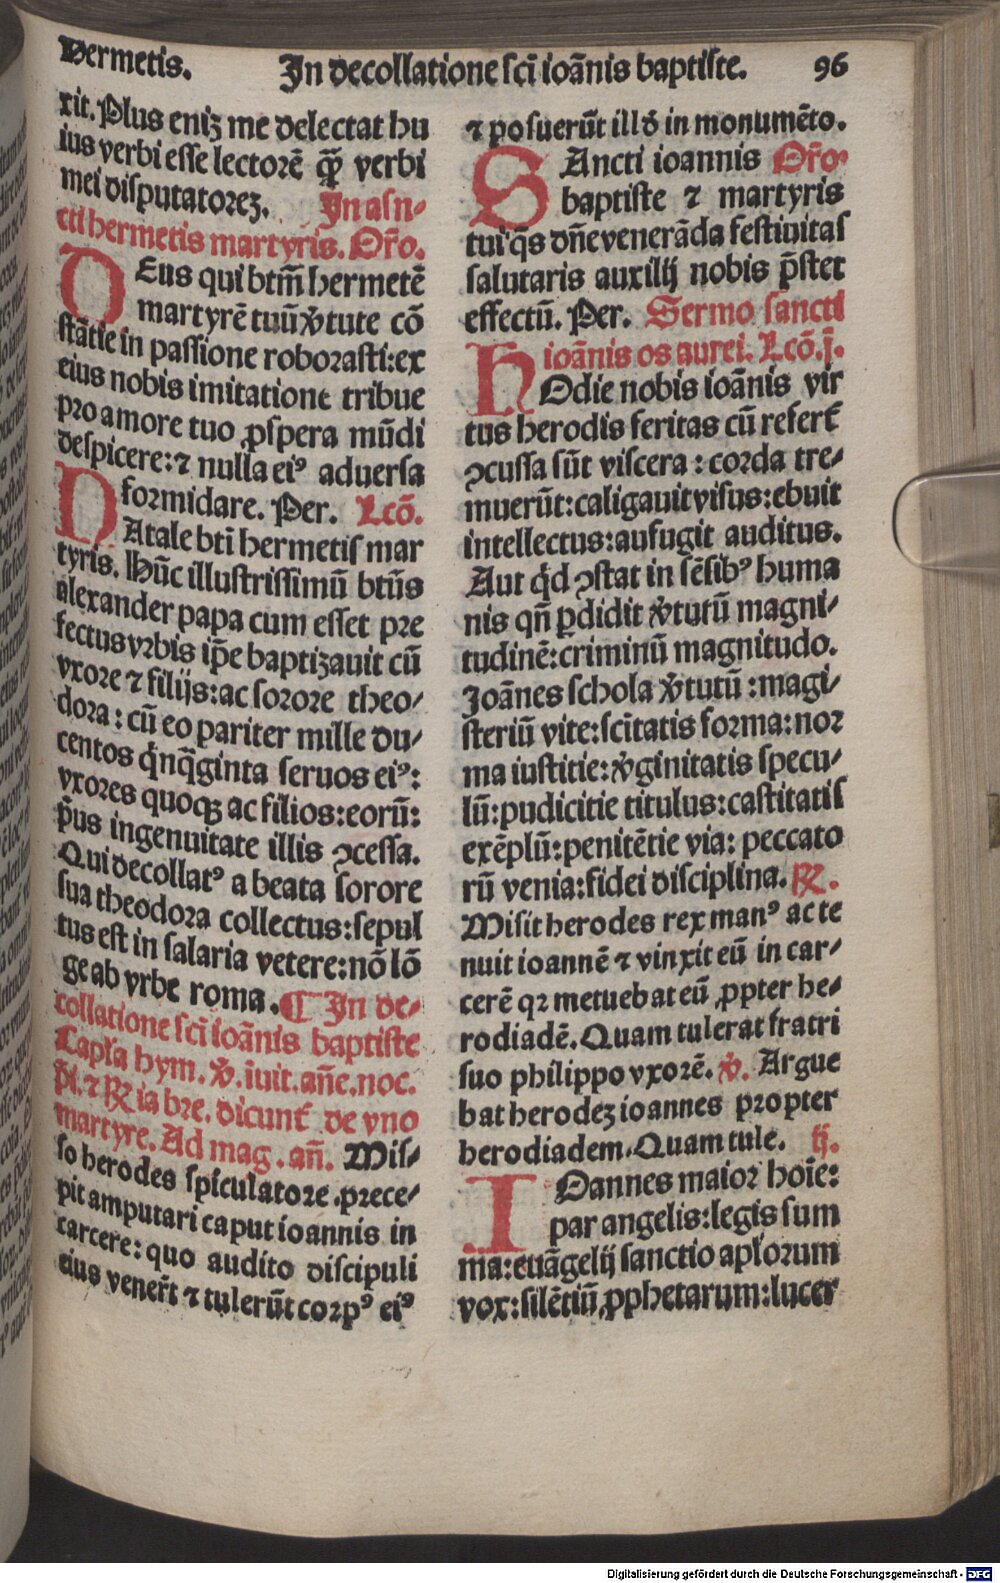 Hermetis.
In decollatione scī ioānis baptiste.
96
xit. Plus eniʒ me delectat hu
ius verbi esse lectorē qꝫ̄ verbi
mei disputatoreʒ. In asn-
cti hermetis martyris. Or̄o.
DEus qui btm̄ hermetē
martyrē tuū v̓tute cō
stātie in passione roborasti: ex
eius nobis imitatione tribue
pro amore tuo ꝓspera mūdi
despicere: ⁊ nulla eiꝰ aduersa
formidare. Per. Lcō.
NAtale bti hermetis mar
tyris. Hūc illustrissimū btūs
alexander papa cum esset pre
fectus vrbis ip̄e baptizauit cū
vxore ⁊ filijs: ac sorore theo-
dora: cū eo pariter mille du-
centos q̓nq̄ginta seruos eiꝰ:
vxores quoqꝫ ac filios: eorū:
p̓us ingenuitate illis ꝯcessa.
Qui decollatꝰ a beata sorore
sua theodora collectus: sepul
tus est in salaria vetere: nō lō
ge ab vrbe roma. ¶ In de-
collatione scī ioānis baptiste
Capl̓a hym. v̓. īuit. añe. noc.
p̄s. ⁊ ℞ ia bre. dicunt̉ de vno
martyre. Ad mag. añ. Mis-
so herodes spiculatore. prece-
pit amputari caput ioannis in
carcere: quo audito discipuli
eius venerūt ⁊ tulerūt corpꝰ eiꝰ
⁊ posuerūt illđ in monumēto.
SAncti ioannis Or̄o
baptiste ⁊ martyris
tui q̄s dñe venerāda festiuitas
salutaris auxilij nobis p̄stet
effectū. Per. Sermo sancti
ioānis os aurei. Lcō. j.
HOdie nobis ioānis vir
tus herodis feritas cū refert̉
ꝯcussa sūt viscera: corda tre-
muerūt: caligauit visus: ebuit
intellectus: aufugit auditus.
Aut qđ ꝯstat in sēsibꝰ huma
nis qñ ꝑdidit v̓tutū magni-
tudinē: criminū magnitudo.
Joānes schola v̓tutū: magi-
steriū vite: scītatis forma: nor
ma iustitie: v̓ginitatis specu-
lū: pudicitie titulus: castitatis
exēplū: penitētie via: peccato
rū venia: fidei disciplina. ℞.
Misit herodes rex manꝰ ac te
nuit ioannē ⁊ vinxit eū in car-
cerē qꝛ metuebat eū ꝓpter he-
rodiadē. Quam tulerat fratri
suo philippo vxorē. v̓. Argue
bat herodeʒ ioannes propter
herodiadem. Quam tule. ij.
IOannes maior hoīe:
par angelis: legis sum
ma: euāgelij sanctio apl̓orum
vox: silētiū ꝓphetarum: lucer
Digitalisierung gefördert durch die Deutsche Forschungsgemeinschaft - DFG